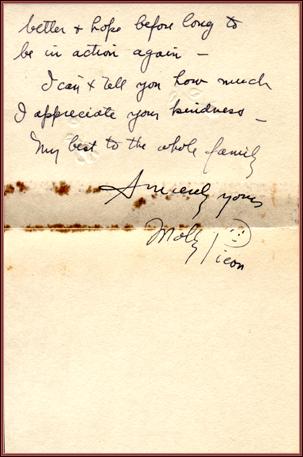 better & hope before long to
be in action again –
I can't tell you how much
I appreciate your kindness –
My best to the whole family
Sincerely yours
Molly Picon